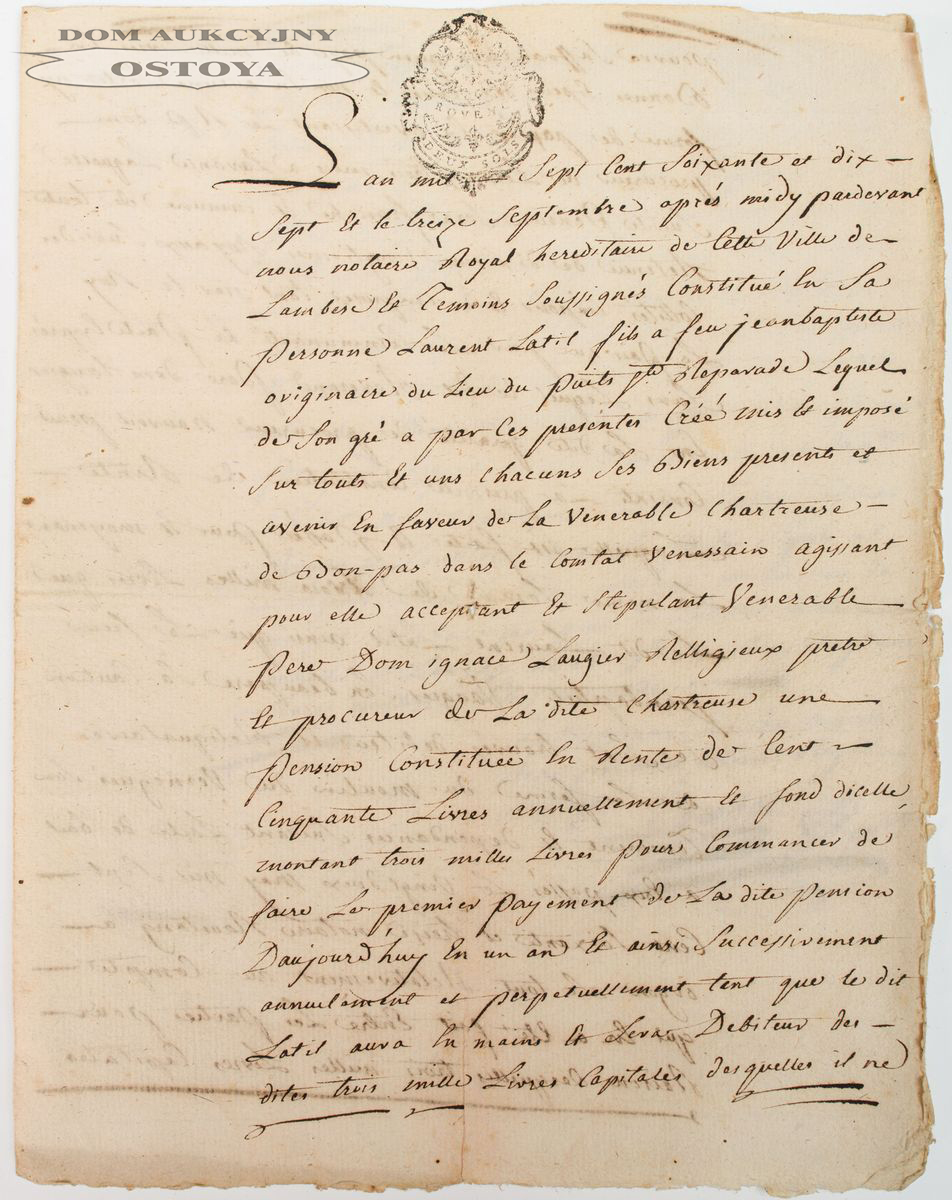 DOM AUKCYJNY
OSTOYA
DEUX SOLS
L an mil Sept Cent Soixante et dix -
Sept Et le treize Septembre après midy pardevant
nous notaire Royal hereditaire de Cette Ville de
Lambesc Et Temoins Soussignés Constitué En Sa
personne Laurent Latil fils a feu jeanbaptiste
originaire du Lieu du Puits Ste Reparade Lequel
de Son gré a par Ces presentes Créé mis Et imposé
Sur touts Et uns Chacuns Ses Biens presents et
avenir En faveur de La Venerable Chartreuse -
de Bon-pas dans le Comtat Venessain agissant
pour elle acceptant Et Stipulant Venerable
pere Dom ignace Laugier Relligieux pretre
Et procureur de La dite Chartreuse une
pension Constituée En Rente de Cent -
Cinquante Livres annuellement Et fond dicelle
montant trois milles Livres pour Commancer de
faire Le premier payement de La dite pension
Daujourd'huy En un an Et ainsi Successivement
annuelement et perpetuellement tent que le dit
Latil aura En mains Et Sera Debiteur des -
dites trois mille Livres Capitales desquelles il ne